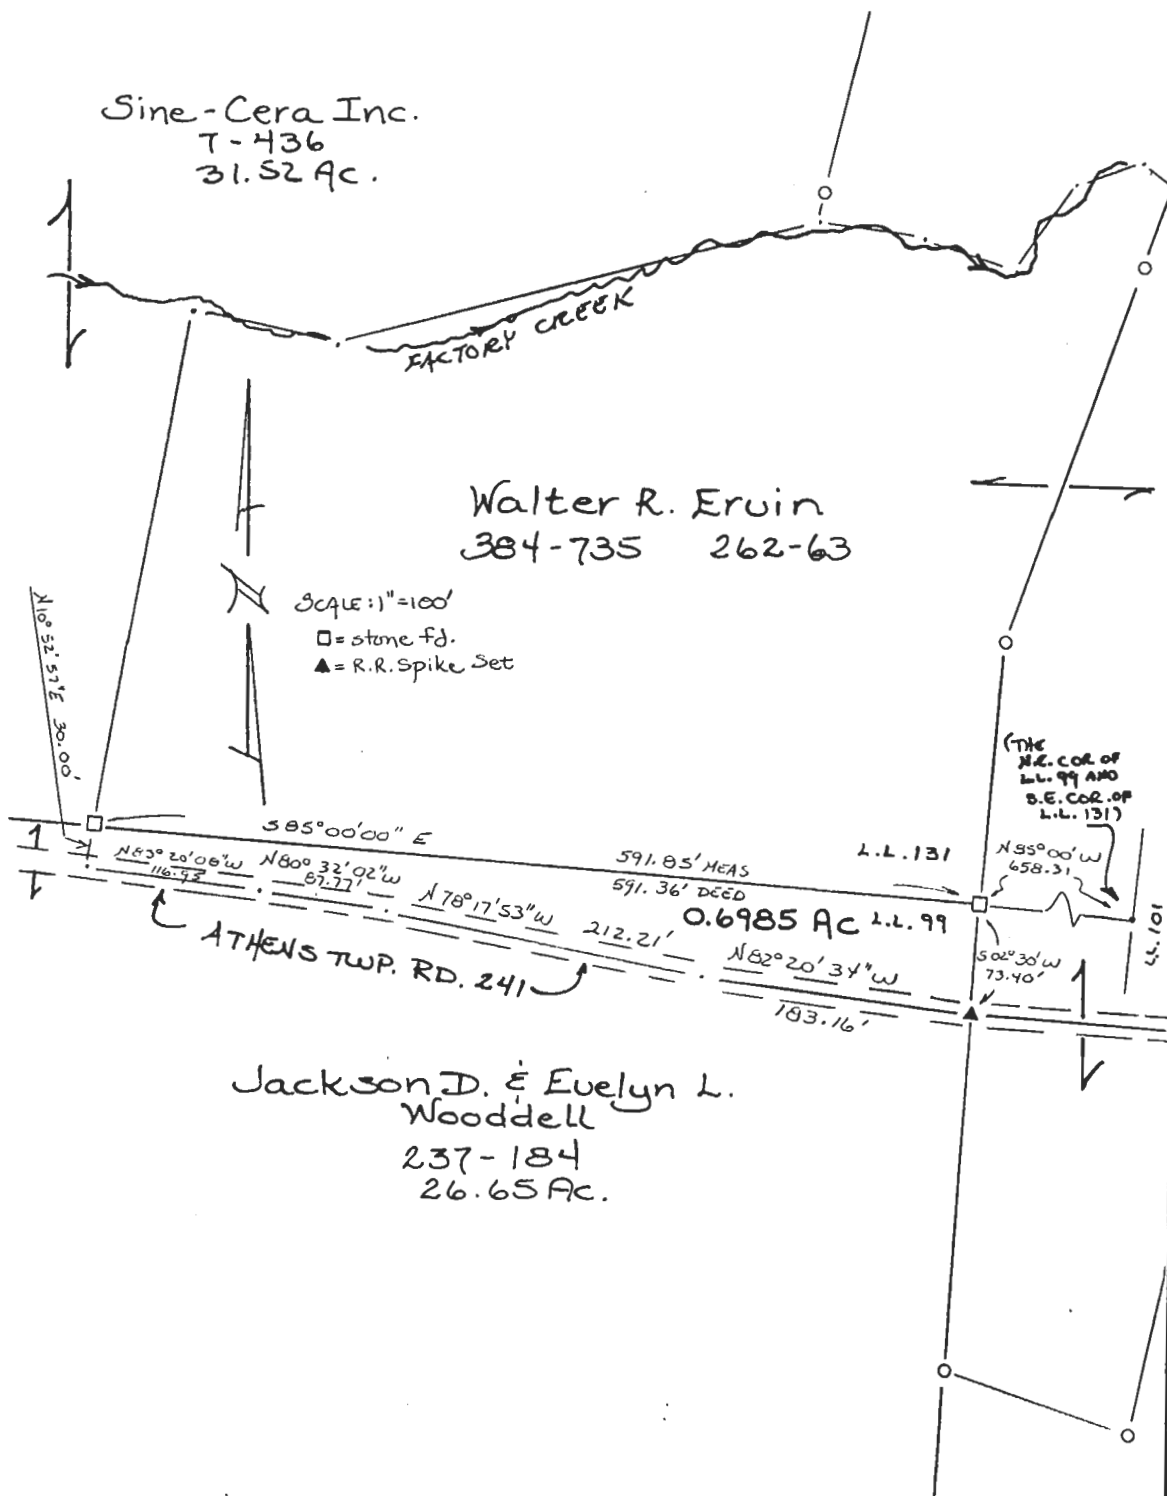 Sine-Cera Inc.
T-436
31.52 Ac.
FACTORY CREEK
Walter R. Ervin
384-735 262-63
SCALE: 1"=100'
□ = stone fd.
▲ = R.R. Spike Set
N10° 52' 57"E 30.00'
(THE
N.E. COR OF
L.L. 99 AND
S.E. COR. OF
L.L. 131)
S85°00'00" E
591.85' MEAS
591.36' DEED
L.L. 131
N85°00'W
658.31
N83°20'08"W
116.93
N80° 32'02"W
87.77'
N78°17'53"W 212.21'
0.6985 Ac L.L. 99
L.L. 101
N82°20'34"W
183.16'
S02°30'W
73.40'
ATHENS TWP. RD. 241
Jackson D. & Evelyn L.
Wooddell
237-184
26.65 Ac.